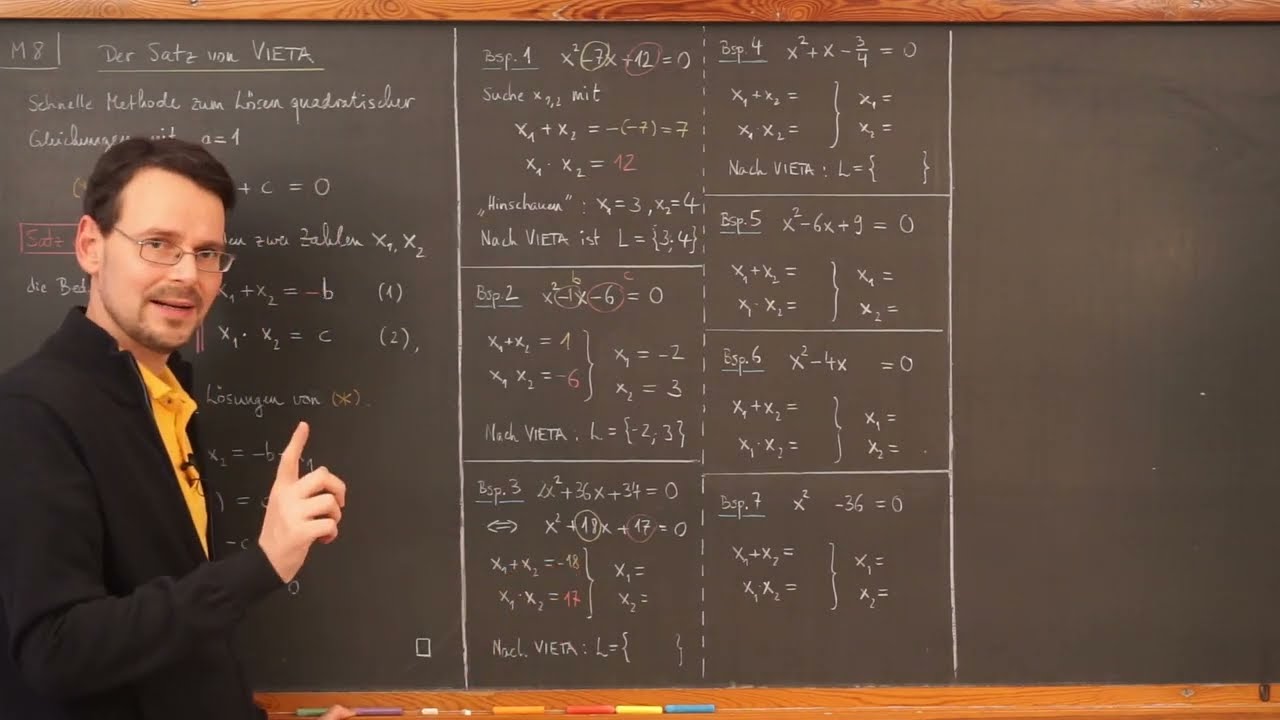 M8
Der Satz von VIETA
Schnelle Methode zum Lösen quadratischer
Gleichungen mit a=1
+ c = 0
Satz
zwei Zahlen x₁, x₂
die
x₁ + x₂ = -b (1)
x₁ · x₂ = c (2),
Lösungen von (*).
x₂ = -b - x₁
0
□
Bsp. 1 x² -7x +12 = 0
Suche x₁,₂ mit
x₁ + x₂ = -(-7) = 7
x₁ · x₂ = 12
„Hinschauen“: x₁ = 3, x₂ = 4
Nach VIETA ist L = {3; 4}
b c
Bsp. 2 x² -1x -6 = 0
x₁ + x₂ = 1 } x₁ = -2
x₁ · x₂ = -6 } x₂ = 3
Nach VIETA: L = {-2; 3}
Bsp. 3 2x² + 36x + 34 = 0
⇔ x² + 18x + 17 = 0
x₁ + x₂ = -18 } x₁ =
x₁ · x₂ = 17 } x₂ =
Nach VIETA: L = { }
Bsp. 4 x² + x - 3/4 = 0
x₁ + x₂ = } x₁ =
x₁ · x₂ = } x₂ =
Nach VIETA: L = { }
Bsp. 5 x² - 6x + 9 = 0
x₁ + x₂ = } x₁ =
x₁ · x₂ = } x₂ =
Bsp. 6 x² - 4x = 0
x₁ + x₂ = } x₁ =
x₁ · x₂ = } x₂ =
Bsp. 7 x² - 36 = 0
x₁ + x₂ = } x₁ =
x₁ · x₂ = } x₂ =